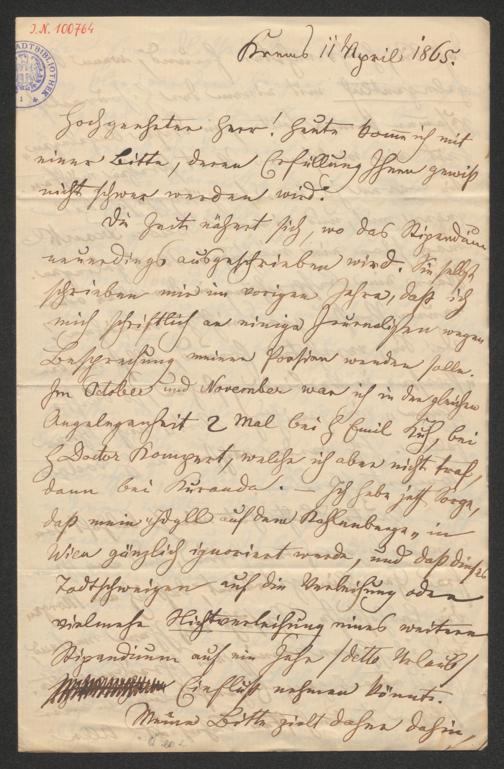 I.N. 100764
STADTBIBLIOTHEK
Krems 11 April 1865.
Hochgeehrter Herr! Heute komme ich mit
einer Bitte, deren Erfüllung Ihnen gewiß
nicht schwer werden wird.
Die Zeit nähert sich, wo das Stipendium
neuerdings ausgeschrieben wird. Sie selbst
schrieben mir im vorigen Jahre, daß ich
mich schriftlich an einige Journalisten wegen
Besprechung meiner Poesien wenden solle.
Im October und November war ich in der gleichen
Angelegenheit 2 Mal bei H Emil Kuh, bei
H Doctor Kompert, welche ich aber nicht traf,
dann bei Kuranda. — Ich habe jetzt Sorge,
daß mein „Idyll auf dem Kahlenberge„ in
Wien gänzlich ignoriert werde, und daß dieses
Todtschweigen auf die Verleihung oder
vielmehr Nichtverleihung eines weitern
Stipendium auf ein Jahr /detto Urlaub/
Einfluß nehmen könnte.
Meine Bitte zielt daher dahin,